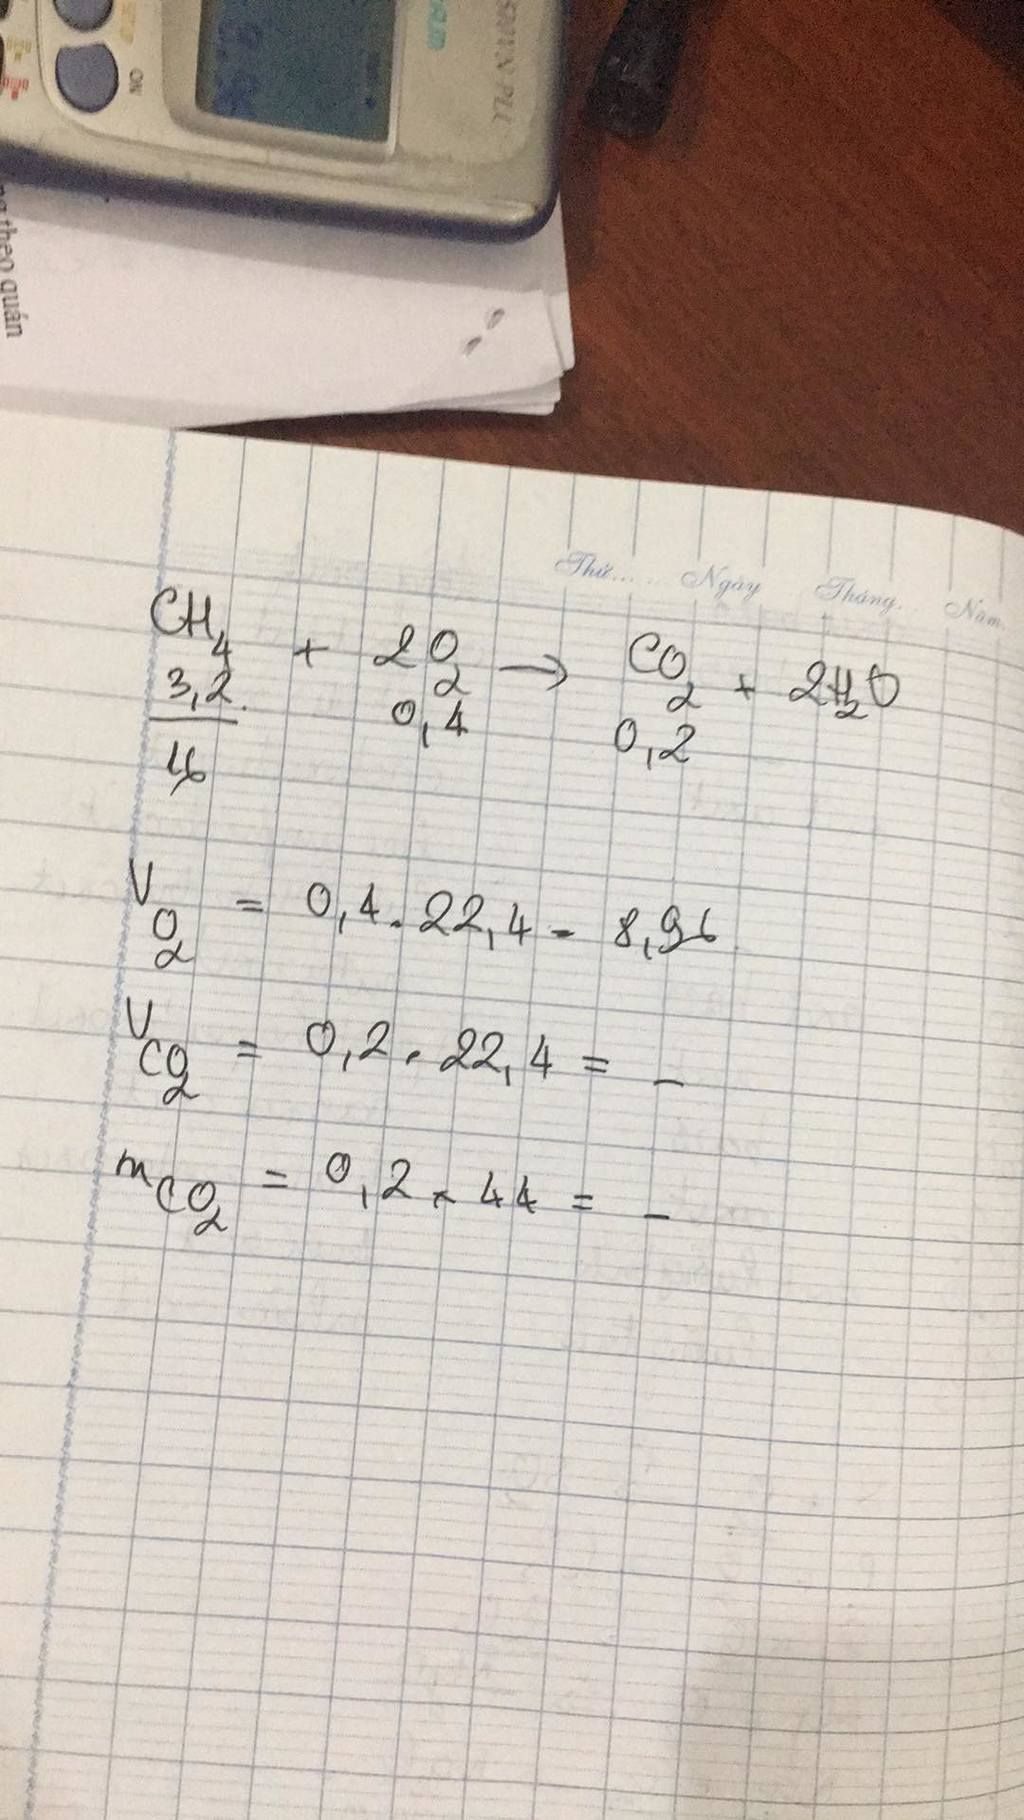 ON
ng theo quán
Thứ...... Ngày Tháng. Năm.
CH4 + 2O2 → CO2 + 2H2O
3,2 0,4 0,2
16
VO2 = 0,4 . 22,4 = 8,96
VCO2 = 0,2 . 22,4 = _
mCO2 = 0,2 × 44 = _